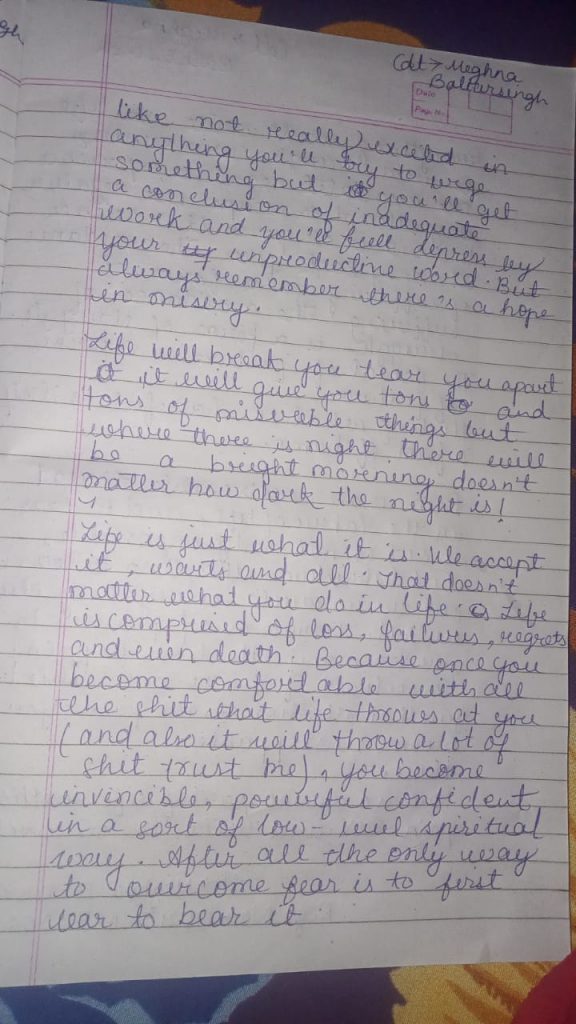 gh
Cdt → Meghna
Baltursingh
Date
Page No.
like not really) excited in
anything you'll try to urge
something but you'll get
a conclusion of inadequate
work and you'll full depress by
your unproductive word. But
always remember there's a hope
in misery.
Life will break you tear you apart
it will give you tons and
tons of misreble things but
where there is night there will
be a bright morning doesn't
matter how dark the night is!
Life is just what it is. We accept
it, warts and all. That doesn't
matter what you do in life. Life
is comprised of loss, failures, regrets
and even death. Because once you
become comfortable with all
the shit that life throws at you
(and also it will throw a lot of
shit trust me), you become
invincible, powerful confident
in a sort of low-level spiritual
way. After all the only way
to overcome fear is to first
lear to bear it